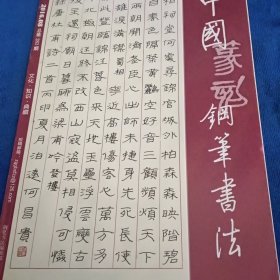 中國
篆刻
鋼筆書法
相祠堂何處尋錦官城外柏森森映階碧
色隔葉黃鸝空好音三顧頻煩天下
開濟老臣心出師未捷身先死長
淚滿襟 花近高樓傷客心萬方多
臨錦江春色來天地玉壘浮雲變古
北極朝廷終不改西山寇盜莫相侵可憐
後主還祠廟日暮聊為梁甫吟登樓
詩二首丙申夏月泊遠何昌貴
文化 知识 典藏